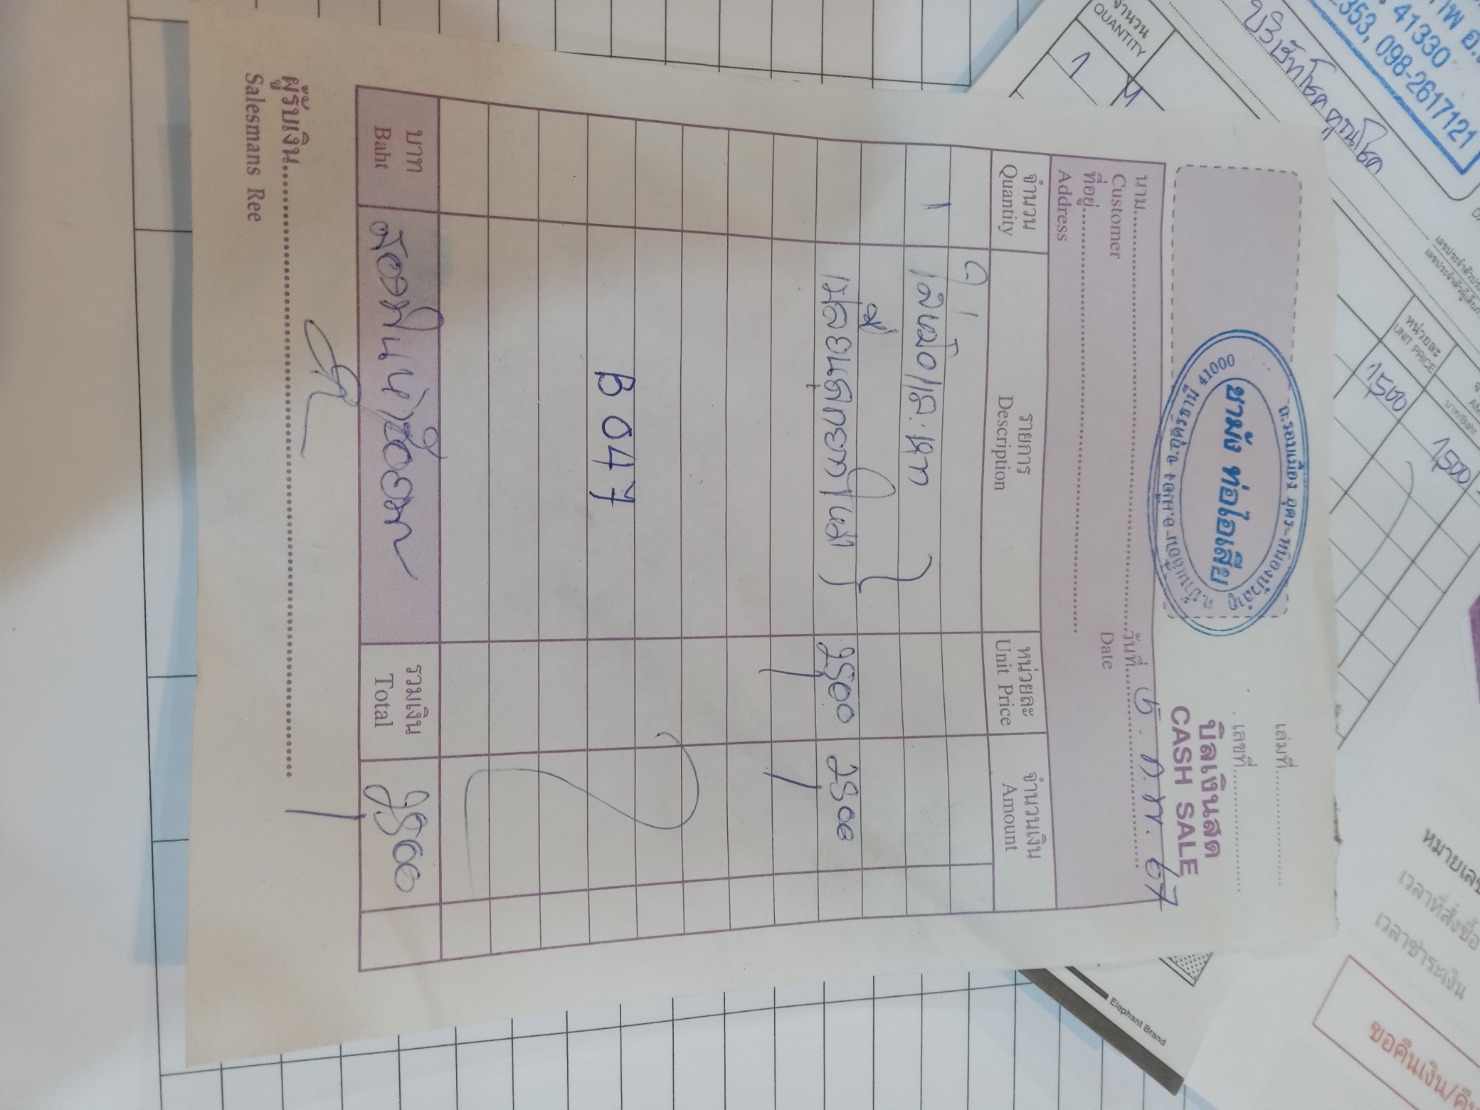 เล่มที่
เลขที่
บิลเงินสด
CASH SALE
ถ.รอบเมือง อุดร-หนองบัวลำภู
ชามัง ท่อไอเสีย
นาม
Customer
วันที่ 5 . ก.พ. 67
Date
ที่อยู่
Address
จำนวน
Quantity
รายการ
Description
หน่วยละ
Unit Price
จำนวนเงิน
Amount
1
2500 2500
B 047
บาท
Baht
สองพันห้าร้อยบาท
รวมเงิน
Total
2500
ผู้รับเงิน
Salesmans Ree
41330
353, 098-2617121
จำนวน
QUANTITY
1
หน่วยละ
UNIT PRICE
1,500
1,500
Elephant Brand
หมายเลข
เวลาที่สั่งซื้อ
เวลาชำระเงิน
ขอคืนเงิน/คืน